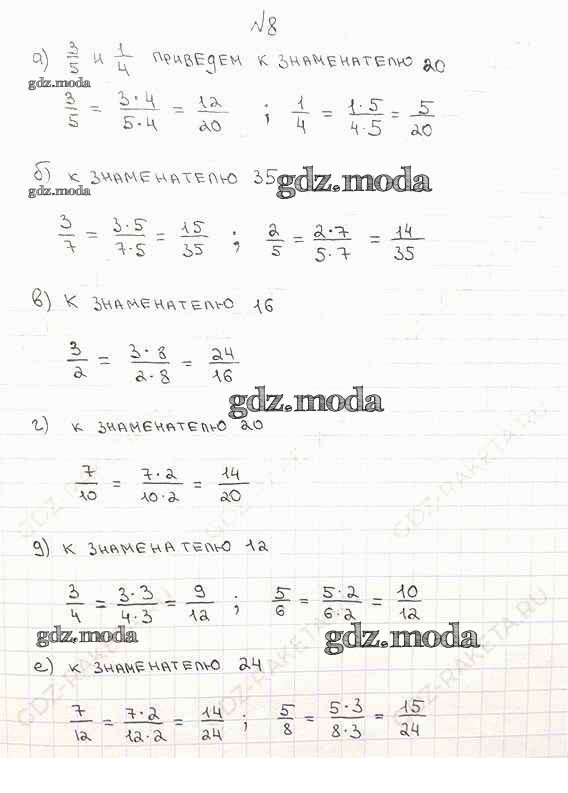 №8
а) 3/5 и 1/4 приведем к знаменателю 20
gdz.moda
3/5 = 3·4/5·4 = 12/20 ; 1/4 = 1·5/4·5 = 5/20
б) к знаменателю 35 gdz.moda
gdz.moda
3/7 = 3·5/7·5 = 15/35 ; 2/5 = 2·7/5·7 = 14/35
в) К знаменателю 16
3/2 = 3·8/2·8 = 24/16
gdz.moda
г) к знаменателю 20
7/10 = 7·2/10·2 = 14/20
GDZ-RAKETA.RU
д) к знаменателю 12
3/4 = 3·3/4·3 = 9/12 ; 5/6 = 5·2/6·2 = 10/12
gdz.moda gdz.moda
е) к знаменателю 24
GDZ-RAKETA.RU GDZ-RAKETA.RU GDZ-RAKETA.RU
7/12 = 7·2/12·2 = 14/24 ; 5/8 = 5·3/8·3 = 15/24